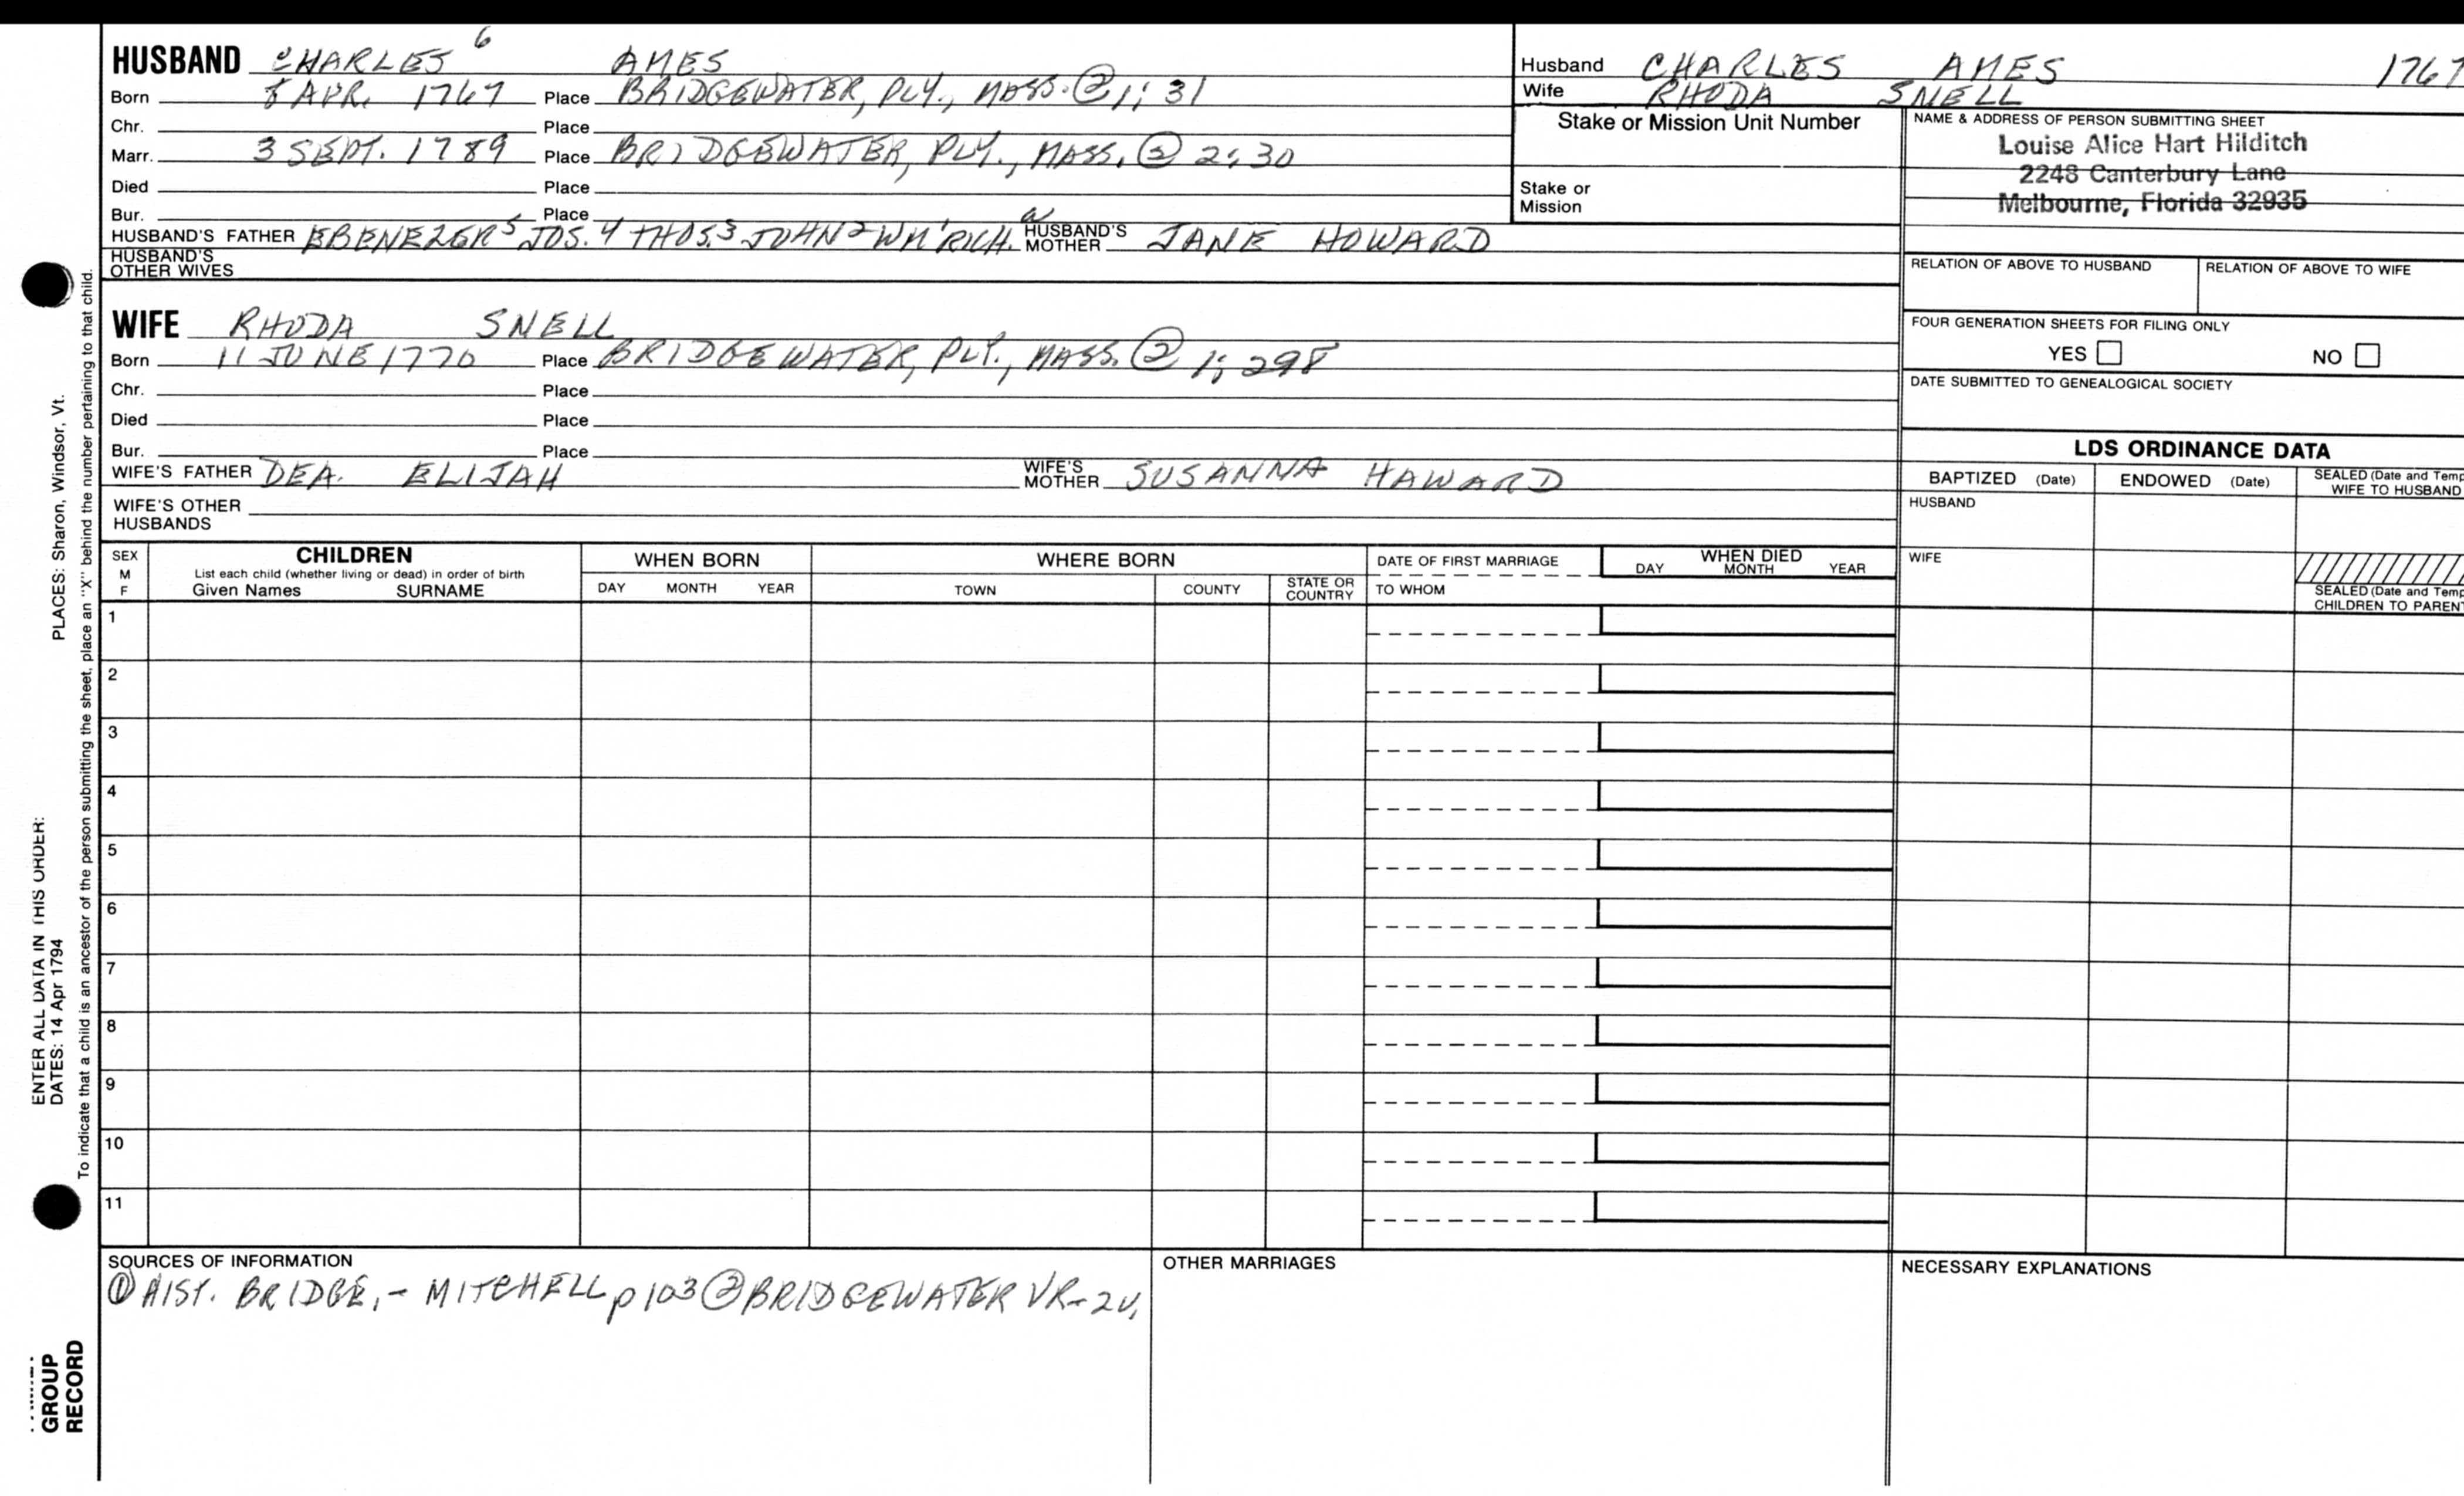 HUSBAND CHARLES 6 AMES
Born 8 APR. 1767 Place BRIDGEWATER, PLY., MASS. ② 1; 31
Chr. Place
Marr. 3 SEPT. 1789 Place BRIDGEWATER, PLY., MASS. ② 2; 30
Died Place
Bur. Place
HUSBAND'S FATHER EBENEZER 5 JOS. 4 THOS. 3 JOHN 2 WM 1 RICH. a HUSBAND'S MOTHER JANE HOWARD
HUSBAND'S OTHER WIVES
WIFE RHODA SNELL
Born 11 JUNE 1770 Place BRIDGEWATER, PLY., MASS. ② 1; 298
Chr. Place
Died Place
Bur. Place
WIFE'S FATHER DEA. ELIJAH WIFE'S MOTHER SUSANNA HAWARD
WIFE'S OTHER HUSBANDS
Husband CHARLES AMES 1767
Wife RHODA SNELL
Stake or Mission Unit Number
Stake or Mission
NAME & ADDRESS OF PERSON SUBMITTING SHEET
Louise Alice Hart Hilditch
2248 Canterbury Lane
Melbourne, Florida 32935
RELATION OF ABOVE TO HUSBAND RELATION OF ABOVE TO WIFE
FOUR GENERATION SHEETS FOR FILING ONLY
YES NO
DATE SUBMITTED TO GENEALOGICAL SOCIETY
LDS ORDINANCE DATA
BAPTIZED (Date) ENDOWED (Date) SEALED (Date and Temp
WIFE TO HUSBAND
HUSBAND
WIFE
SEALED (Date and Temp
CHILDREN TO PARENT
SEX
M
F
CHILDREN
List each child (whether living or dead) in order of birth
Given Names SURNAME
WHEN BORN
DAY MONTH YEAR
WHERE BORN
TOWN COUNTY STATE OR COUNTRY
DATE OF FIRST MARRIAGE
TO WHOM
WHEN DIED
DAY MONTH YEAR
1
2
3
4
5
6
7
8
9
10
11
SOURCES OF INFORMATION
① HIST. BRIDGE. - MITCHELL p 103 ② BRIDGEWATER VR - 2V.
OTHER MARRIAGES
NECESSARY EXPLANATIONS
ENTER ALL DATA IN THIS ORDER:
DATES: 14 Apr 1794 PLACES: Sharon, Windsor, Vt.
To indicate that a child is an ancestor of the person submitting the sheet, place an "X" behind the number pertaining to that child.
GROUP
RECORD